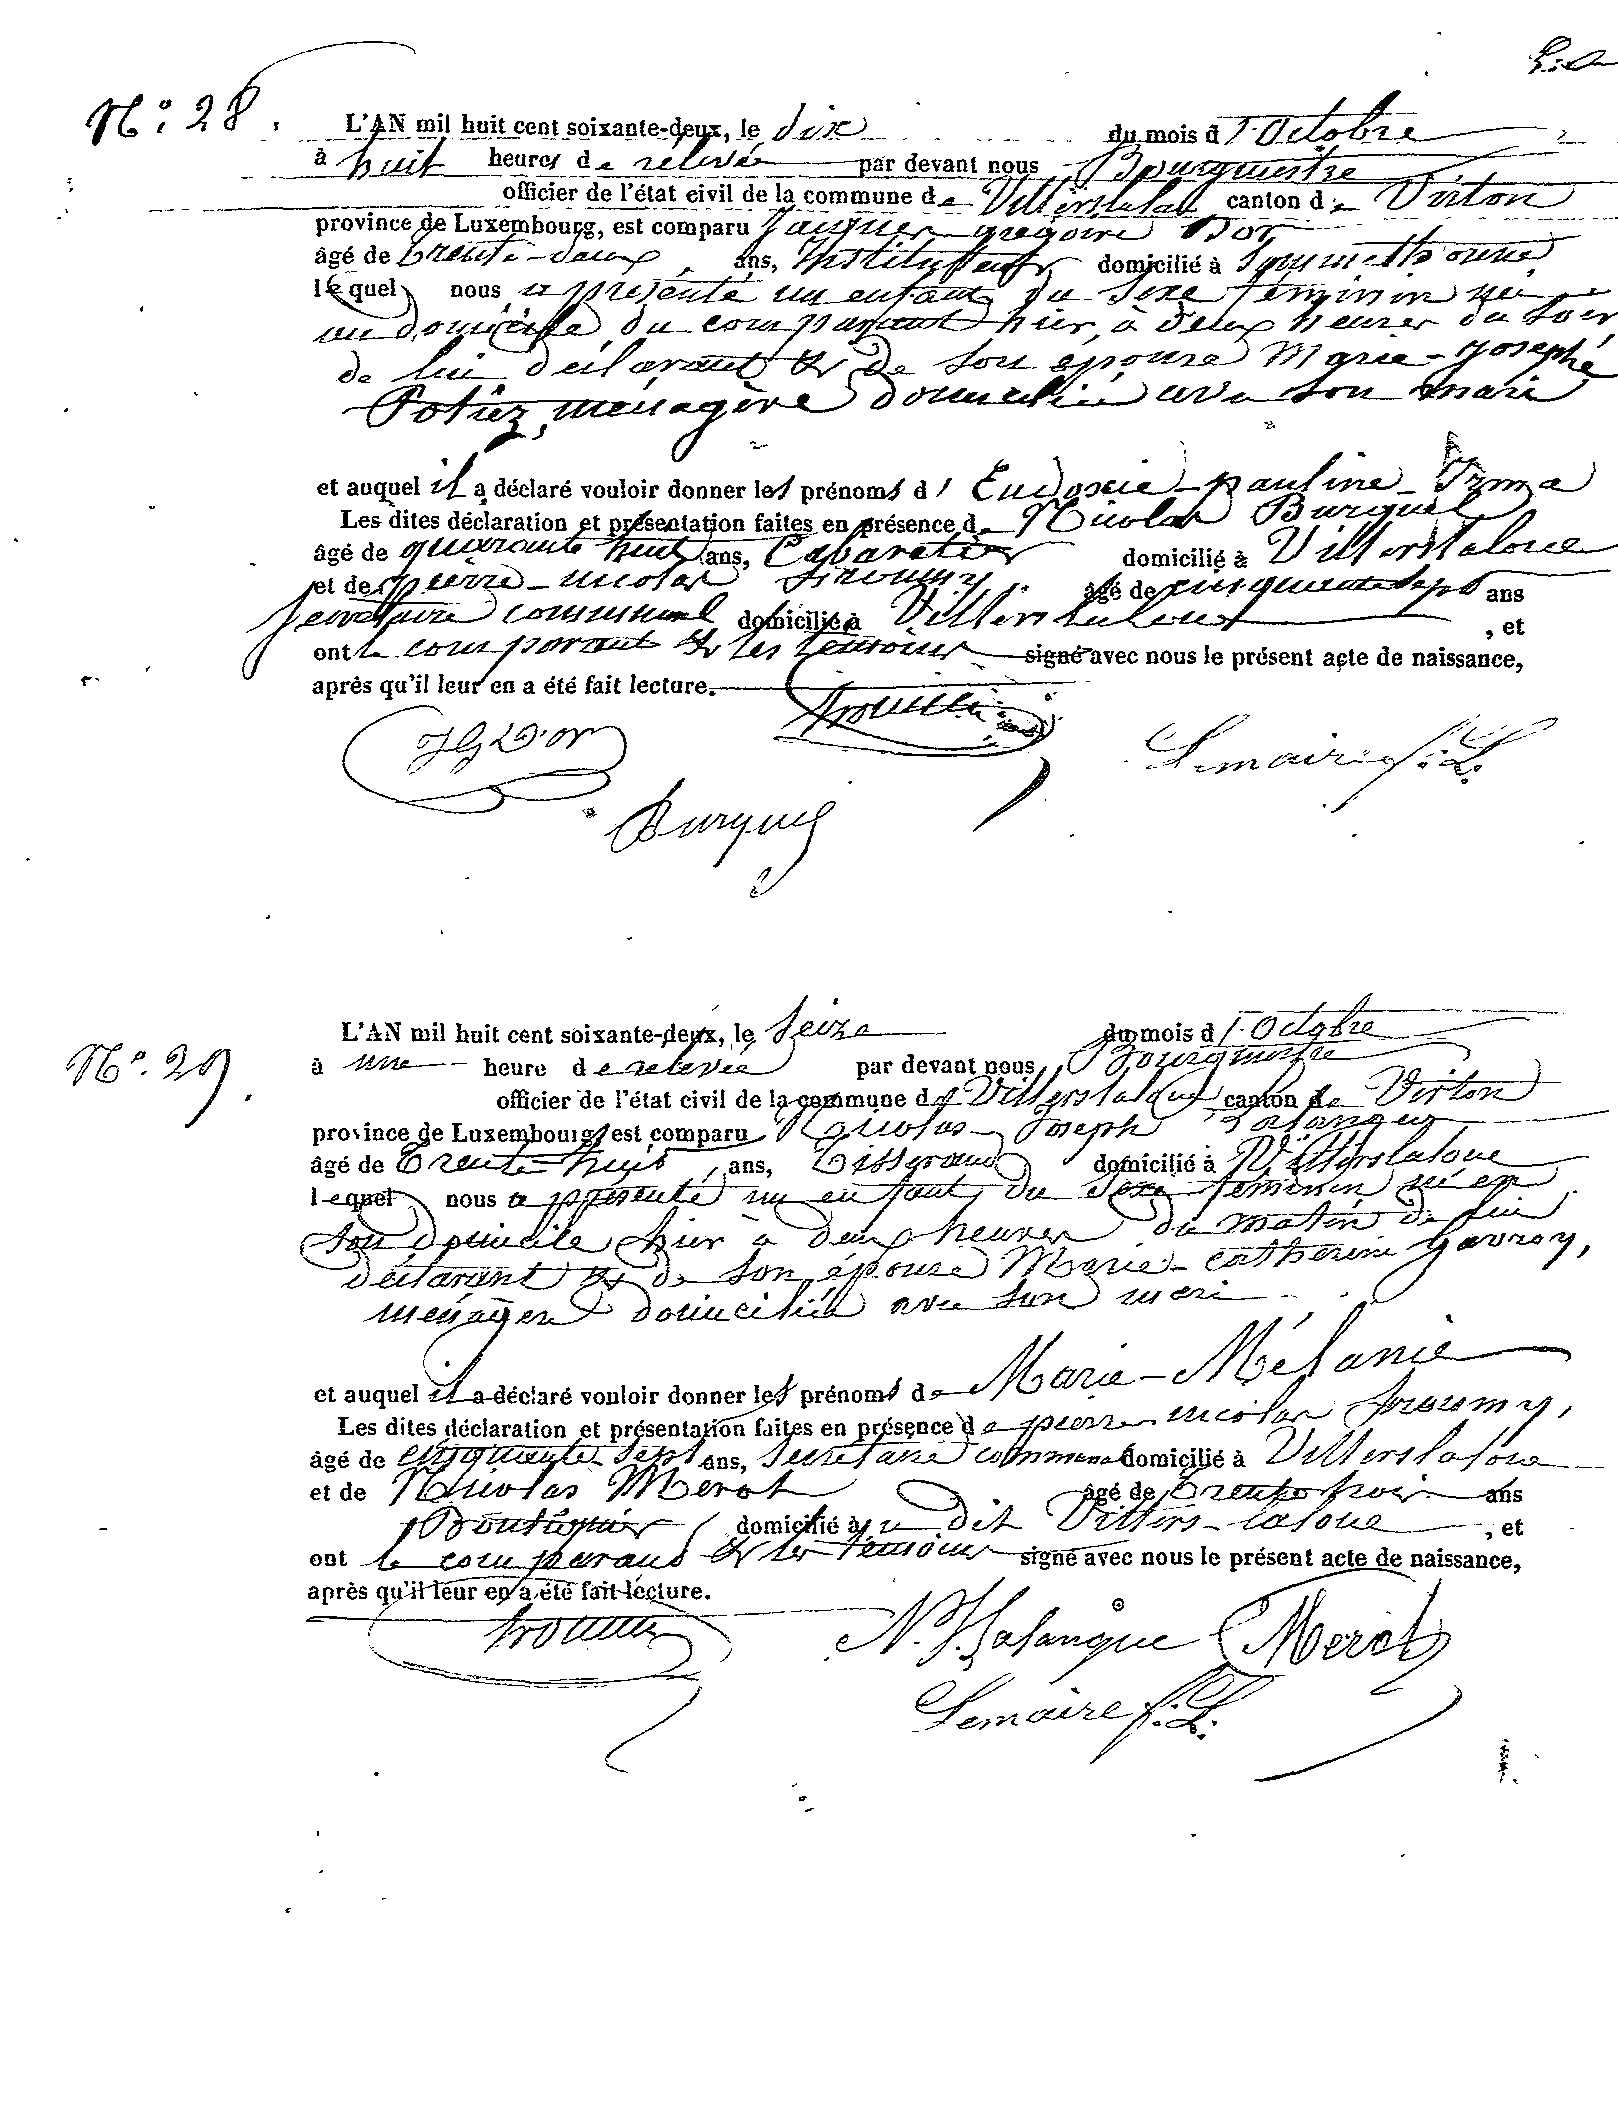 N.° 28.
L'AN mil huit cent soixante-deux, le dix du mois d'Octobre
à huit heures de relevée par devant nous Bourgmestre
officier de l'état civil de la commune de Villerslaloue canton de Virton
province de Luxembourg, est comparu Jacques grégoire Dor
âgé de trente-deux ans, Instituteur domicilié à Sommethonne
lequel nous a présenté un enfant du sexe féminin né
au domicile du comparant hier, à deux heures du soir
de lui déclarant & de son épouse Marie-Josephe
Potiez, ménagère domiciliée avec son mari
et auquel il a déclaré vouloir donner les prénoms d' Eudoxie-pauline-Irma
Les dites déclaration et présentation faites en présence de Nicolas Burquel
âgé de quarante huit ans, Cabaretier domicilié à Villerslaloue
et de pierre-nicolas âgé de cinquante sept ans
secrétaire communal domicilié à Villerslaloue, et
ont le comparant & les témoins signé avec nous le présent acte de naissance,
après qu'il leur en a été fait lecture.
JG Dor
Lemaire f.L.
Burquel
N.° 29.
L'AN mil huit cent soixante-deux, le seize du mois d'Octobre
à une heure de relevée par devant nous, Bourgmestre
officier de l'état civil de la commune de Villerslaloue canton de Virton
province de Luxembourg, est comparu Nicolas-Joseph Lalangue
âgé de trente-huit, ans, Tisserand domicilié à Villerslaloue
lequel nous a présenté un enfant, du sexe féminin né en
son domicile hier à deux heures du matin de lui
déclarant & de son épouse Marie-catherine Gavroy,
ménagère domiciliée avec son mari
et auquel il a déclaré vouloir donner les prénoms de Marie-Mélanie
Les dites déclaration et présentation faites en présence de pierre nicolas
âgé de cinquante sept ans, secrétaire communal domicilié à Villerslaloue
et de Nicolas Merot âgé de trente trois ans
Boutiquier domicilié au dit Villers-laloue, et
ont le comparant & les témoins signé avec nous le présent acte de naissance,
après qu'il leur en a été fait lecture.
N. J. Lalangue Merot
Lemaire f.L.